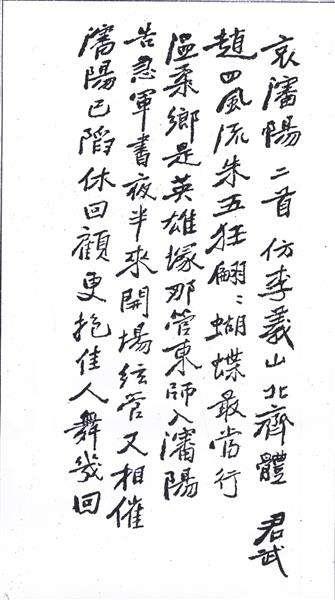 哀瀋陽二首 仿李義山北齊體 君武
趙四風流朱五狂翩〻蝴蝶最當行
溫柔鄉是英雄塚那管東師入瀋陽
告急軍書夜半來開場絃管又相催
瀋陽已陷休回顧更抱佳人舞幾回